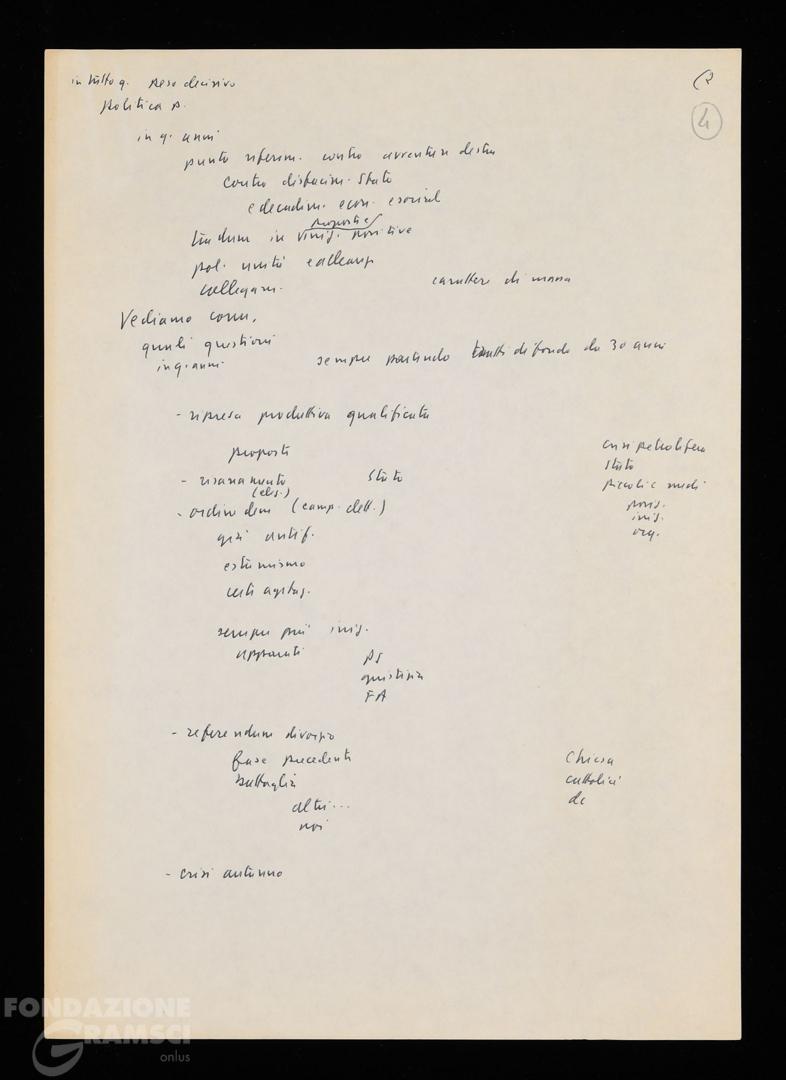 in tutto q. peso decisivo
politica p.
(2
4
in q. anni
punto riferim. contro avventure destra
contro disfacim. Stato
e decadim. econ. e social
proposti e
tradum in iniz. positive
pol. unità e alleanze
collegam.
carattere di massa
Vediamo come,
quali questioni
in q. anni
sempre partendo tratti di fondo da 30 anni
- ripresa produttiva qualificata
proposte
crisi petrolifera
Stato
piccoli e medi
posiz.
iniz.
org.
- risanamento Stato
- ordine dem (camp. elett.)
giri antif.
estremismo
certi
sempre più iniz.
apparati
PS
giustizia
FA
- referendum divorzio
fase precedente
battaglia
altri...
noi
Chiesa
cattolici
dc
- crisi autunno
FONDAZIONE
GRAMSCI
onlus